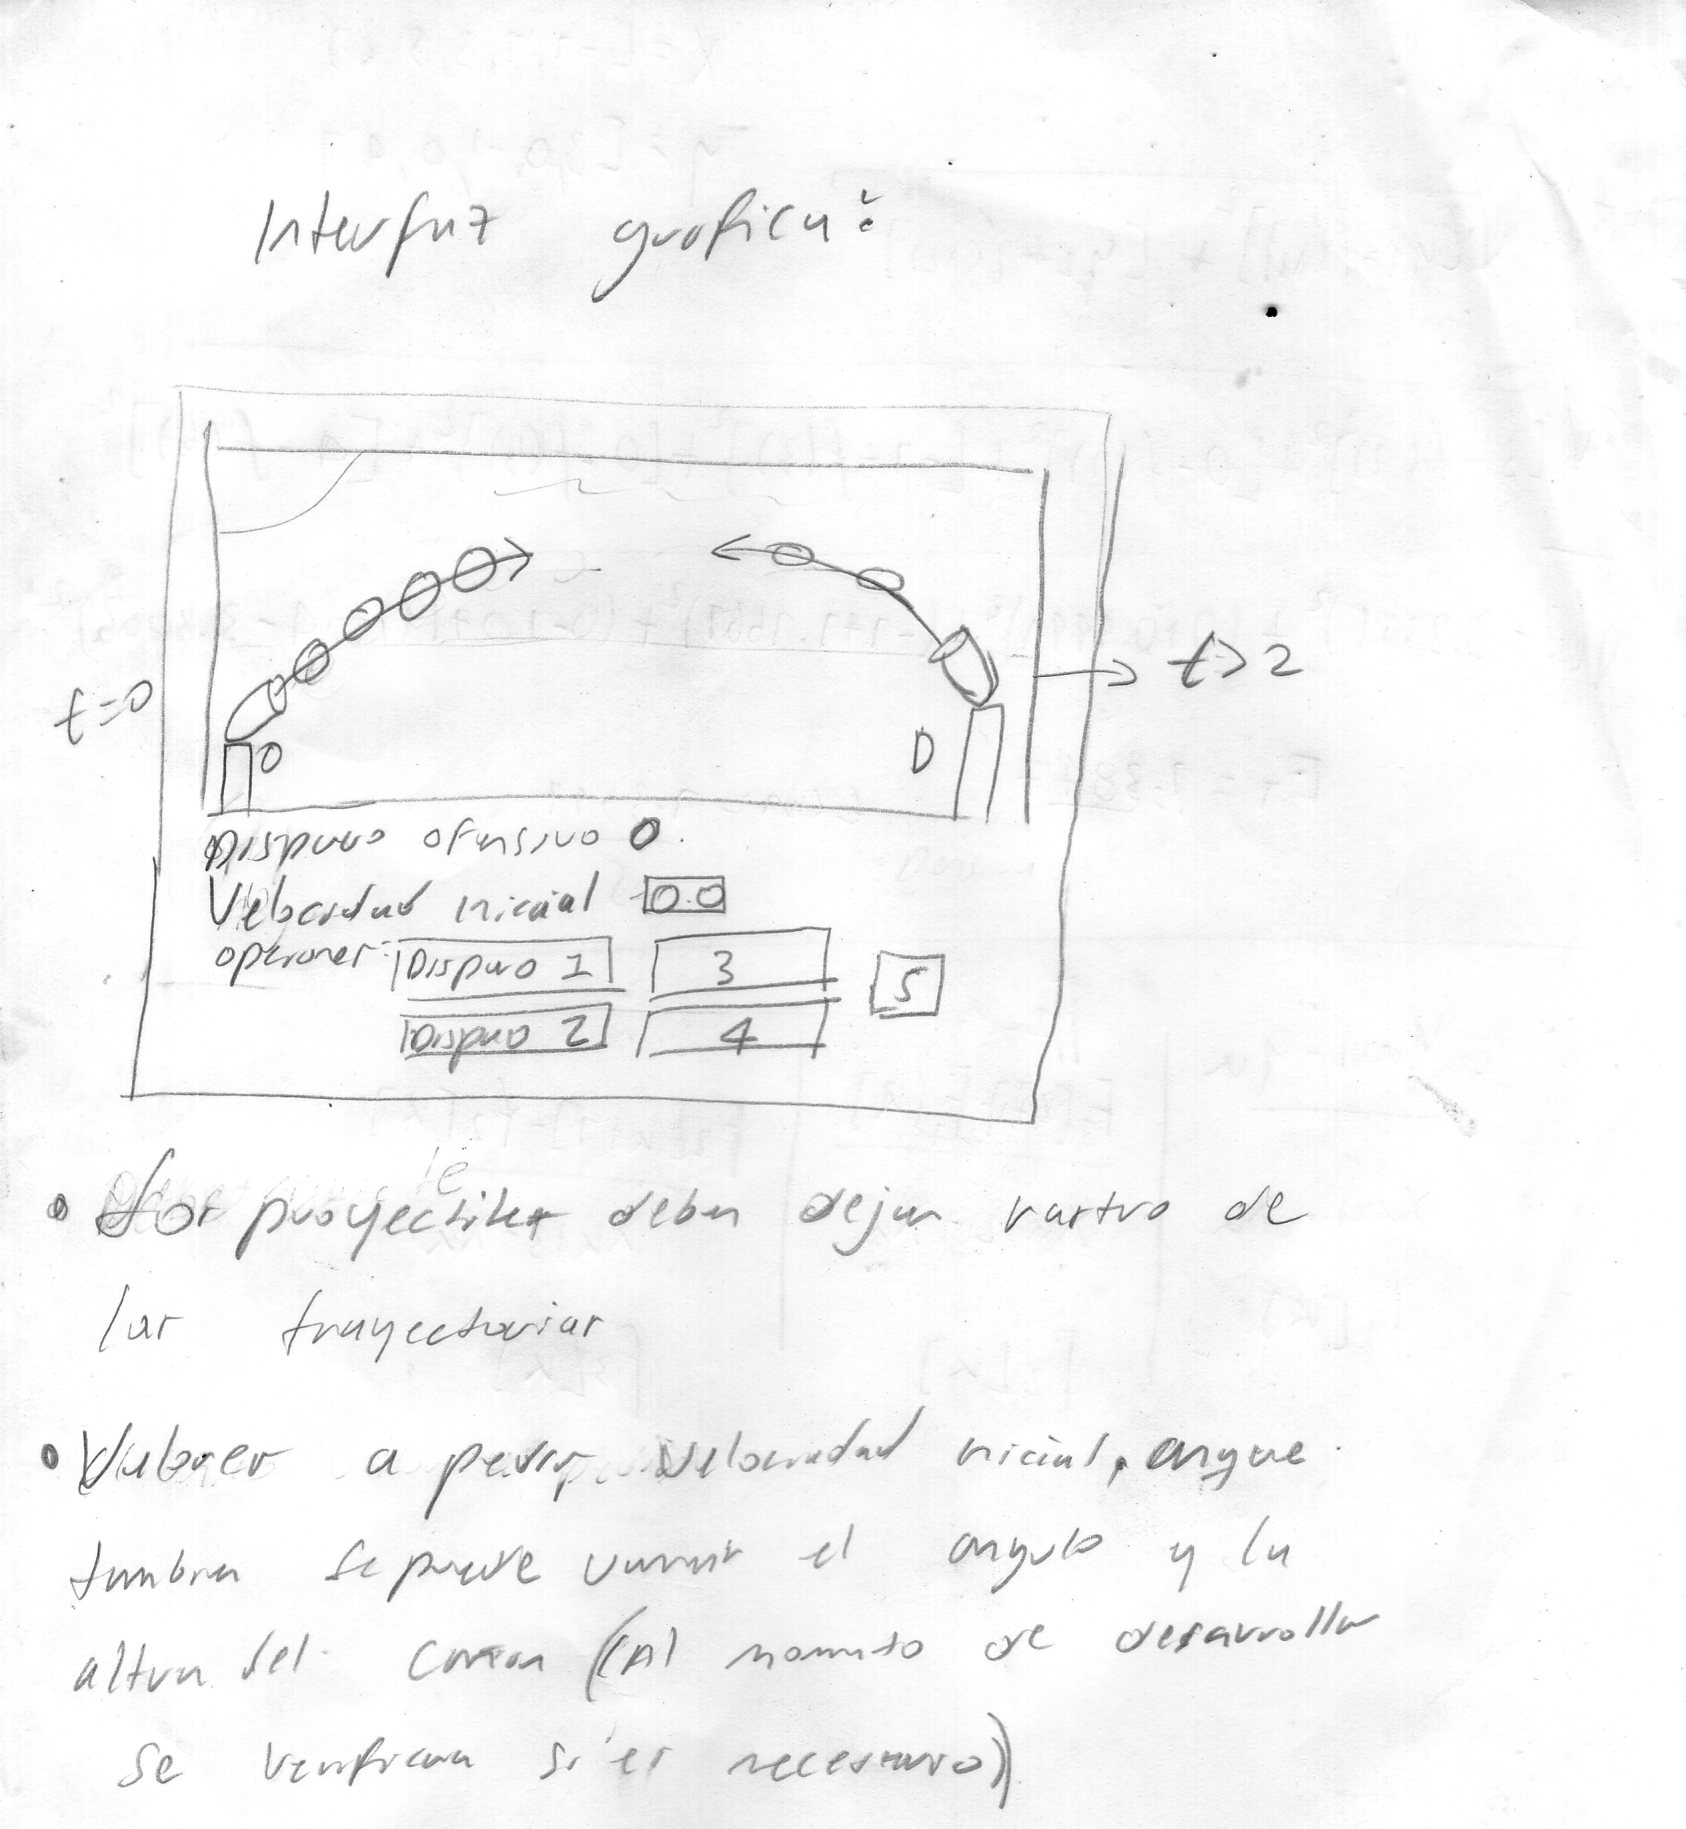 Interfaz grafica:
t=0
t>2
O
D
Disparo ofensivo O.
Velocidad inicial 0.0
opciones: Disparo 1 3 5
Disparo 2 4
• Los proyectiles deben dejar rastro de
las trayectorias
• Valores a pedir velocidad inicial, aunque
tambien se puede variar el angulo y la
altura del cañon (Al momento de desarrollar
se verificara si es necesario)